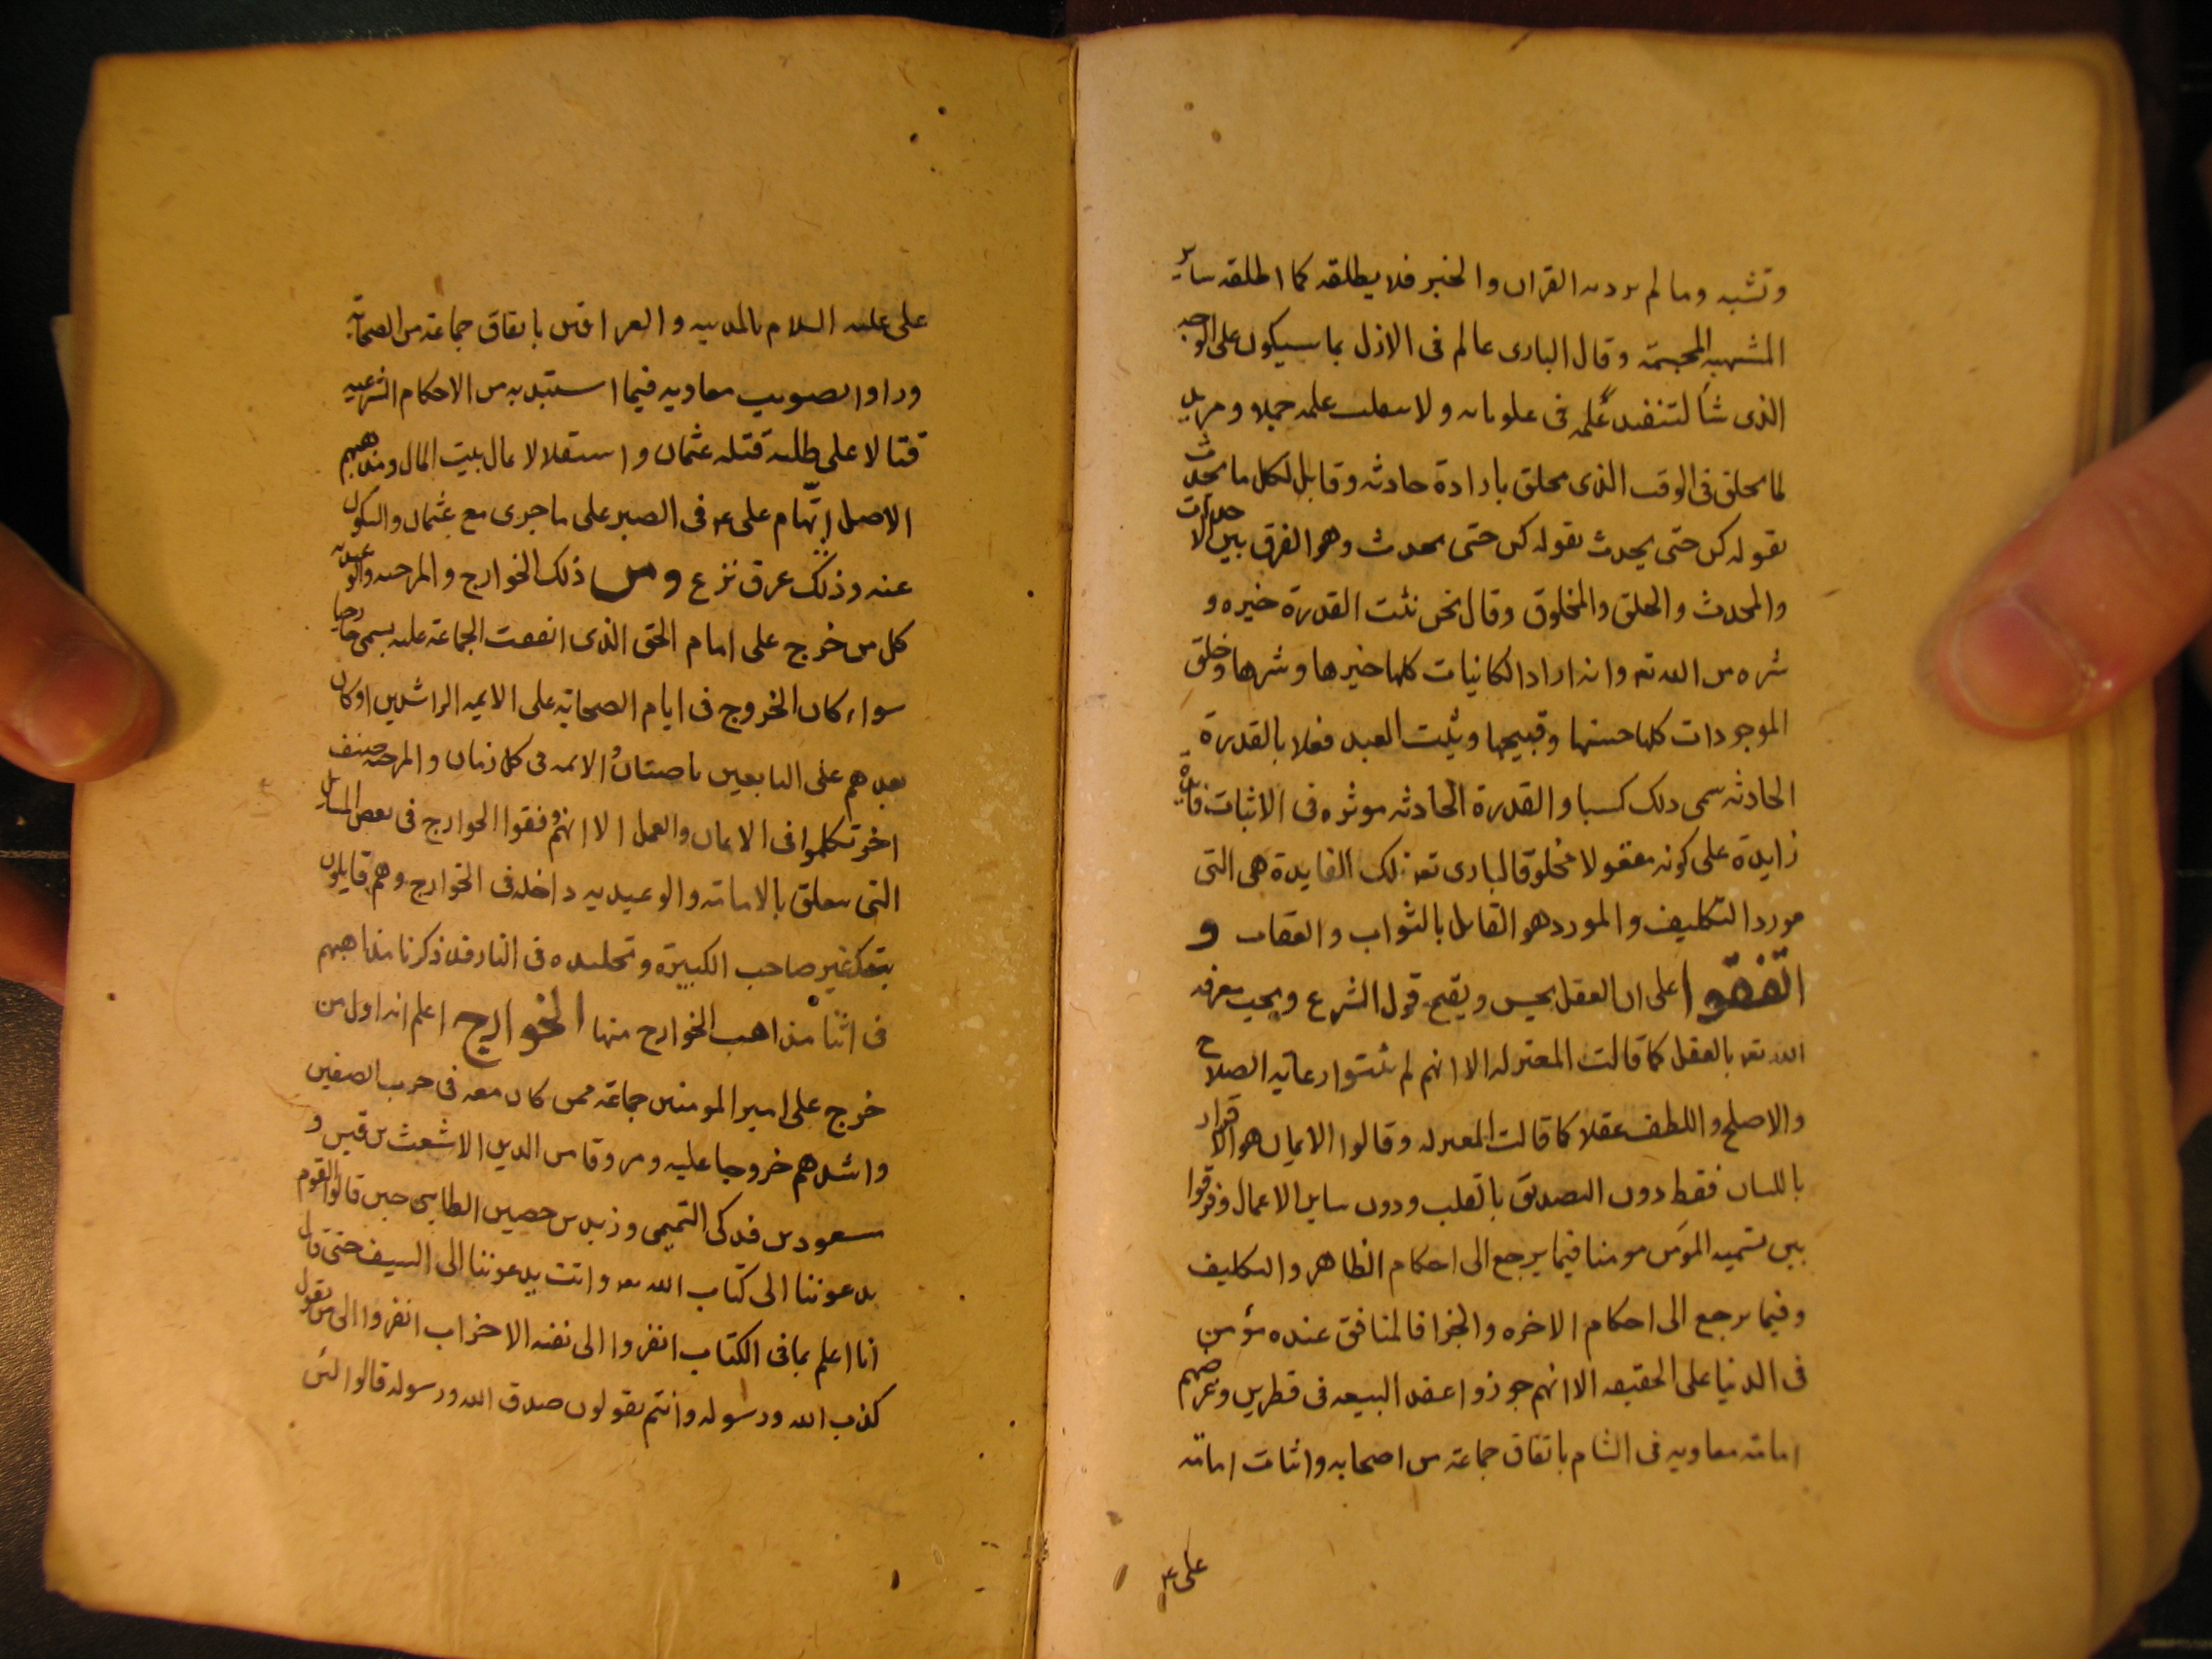 وتشبه وما لم يرد به القران والخبر فلا يطلقه كما اطلقه ساير
المشبهه المجسمة وقال البارى عالم فى الازل بما سيكون على الوجه
الذى شأ لتنفيد علمه فى علوماته ولا سعلب علمه جهلا ومريد
لما يخلق فى الوقت الذى يخلق بارادة حادثه وقايل لكل ما يحدث
بقوله كن حتى يحدث بقوله كن حتى يحدث وهو الفرق بين الاحداث
والمحدث والخلق والمخلوق وقال نحن نثبت القدرة خيره و
شره من الله تع وانه اراد الكانيات كلها خيرها وشرها وخلق
الموجودات كلها حسنها وقبيحها ويثبت العبد فعلا بالقدرة
الحادثه سمى ذلك كسبا والقدرة الحادثه موثره فى الاثبات فايدة
زايدة على كونه مفعولا مخلوقا لبارى تع تلك الفايدة هى التى
مورد التكليف والمورد هو القابل بالثواب والعقاب و
اتفقوا على ان العقل يحسن ويقبح قبل الشرع ويجب معرفه
الله تع بالعقل كما قالت المعتزله الا انهم لم يثبتوا رعايه الصلاح
والاصلح واللطف عقلا كما قالت المعتزله وقالوا الايمان هو الاقرار
باللسان فقط دون التصديق بالقلب ودون ساير الاعمال وفرقوا
بين تسميه المؤمن مومنا فيما يرجع الى احكام الظاهر والتكليف
وفيما يرجع الى احكام الاخره والجزا فالمنافق عنده مؤمن
فى الدنيا على الحقيقه الا انهم جوزوا عقد البيعه فى قطرين وغرضهم
امامه معاويه فى الشام باتفاق جماعة من اصحابه واثبات امامة
على ع
على عليه السلام بالمدينه والعراقين باتفاق جماعة من الصحابة
وراوا تصويب معاويه فيما استبد به من الاحكام الشرعيه
قتالا على طلب قتله عثمان واستقلالا بمال بيت المال ومذهبهم
الاصل اتهام على ع فى الصبر على ما جرى مع عثمان والسكوت
عنه وذلك عرق نزع ومن ذلك الخوارج والمرجئه والوعيديه
كل من خرج على امام الحق الذى اتفقت الجماعة عليه يسمى خارجيا
سواء كان الخروج فى ايام الصحابه على الايمه الراشدين او كان
بعدهم على التابعين باحسان والائمه فى كل زمان والمرجئه صنف
اخر تكلموا فى الايمان والعمل الا انهم وفقوا الخوارج فى بعض المسايل
التى يتعلق بالامامه والوعيديه داخله فى الخوارج وهم قايلون
بتكفير صاحب الكبيرة وتخليده فى النار قد ذكرنا مذاهبهم
فى اثنا مذاهب الخوارج منها الخوارج اعلم انه اول من
خرج على امير المومنين جماعة ممن كان معه فى حرب الصفين
واشدهم خروجا عليه ومروقا من الدين الاشعث بن قيس و
مسعود بن فدكى التميمى وزيد بن حصين الطايى حين قالوا القوم
يدعوننا الى كتاب الله تع وانت يدعوننا الى السيف حتى قال
انا اعلم بما فى الكتاب انفروا الى بقيه الاحزاب انفروا الى من يقول
كذب الله ورسوله وانتم تقولون صدق الله ورسوله قالوا لئن